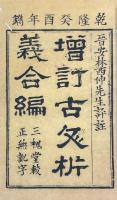 乾隆癸酉年鐫
晉安林西仲先生評註
增訂古文析
義合編
三槐堂較
正無訛字